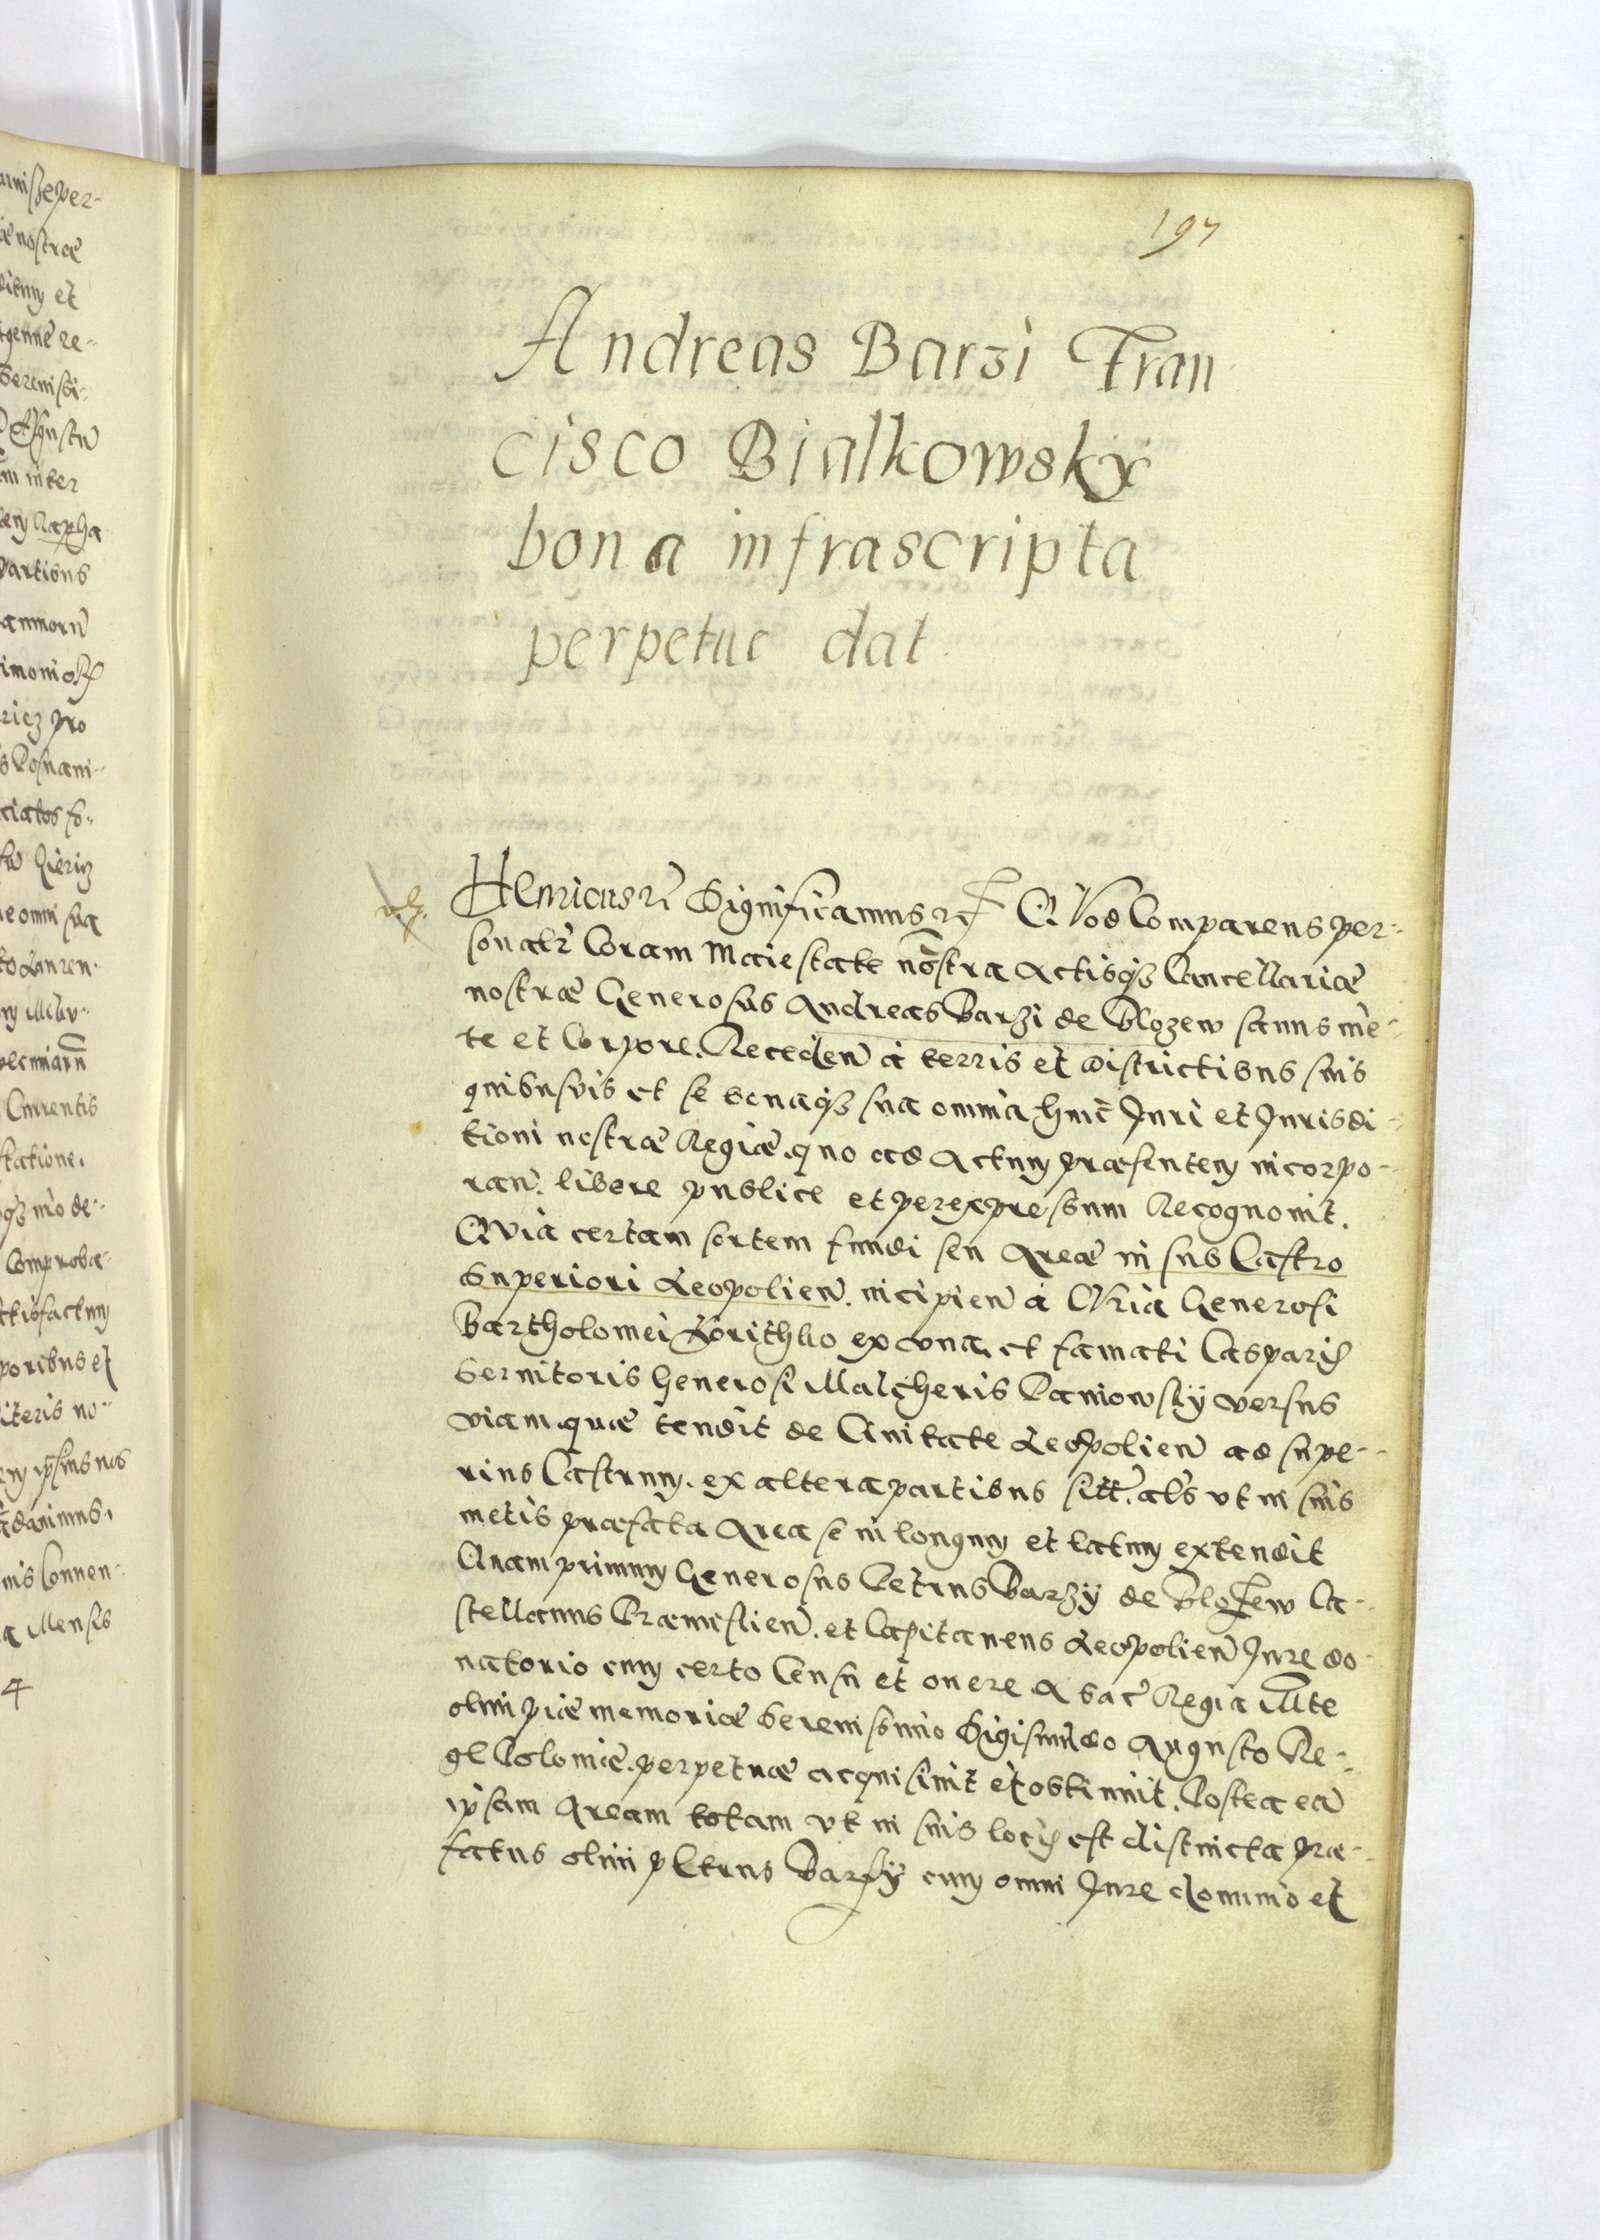 197
Andreas Barzi Fran
cisco Bialkowsky
bona infrascripta
perpetue dat
Henricus Significamus QVod Comparens per-
sonalr Coram Maiestate nostra Actisqz Cancellariæ
nostræ Generosus Andreas Barzi de Blozew sanus me-
te et Corpore. Receden à terris et districtibus suis
quibusuis et se bonaqz sua omnia huic Iuri et Iurisdi-
tioni nostræ Regiæ quo ad Actum præsentem incorpo-
ran. libere publice et per expressum Recognouit.
QVia certam sortem fundi seu Areæ in sub Castro
Superiori Leopolien. incipien à CVria Generosi
Bartholomei ex vna. et famati Casparis
Seruitoris Generosi Malcheris Paniowsky versus
viam quæ tendit de Ciuitate Leopolien ad supe-
rius Castrum. ex altera partibus sitt. als vt in suis
metis præfata Area se in longum et latum extendit
Quam primum Generosus Petrus Barzy de Blozew Ca-
stellanus Præmislien. et Capitaneus Leopolien Iure do-
natorio cum certo Censu et onere A Sac Regia Mte
olim piæ memoriæ Serenissimo Sigismudo Augusto Re-
ge Poloniæ. perpetuæ acquisiuit et obtinuit. Postea ea
ipsam Aream totam vt in suis locis est distincta præ-
fatus olim Petrus Barsy cum omni Iure dominio et